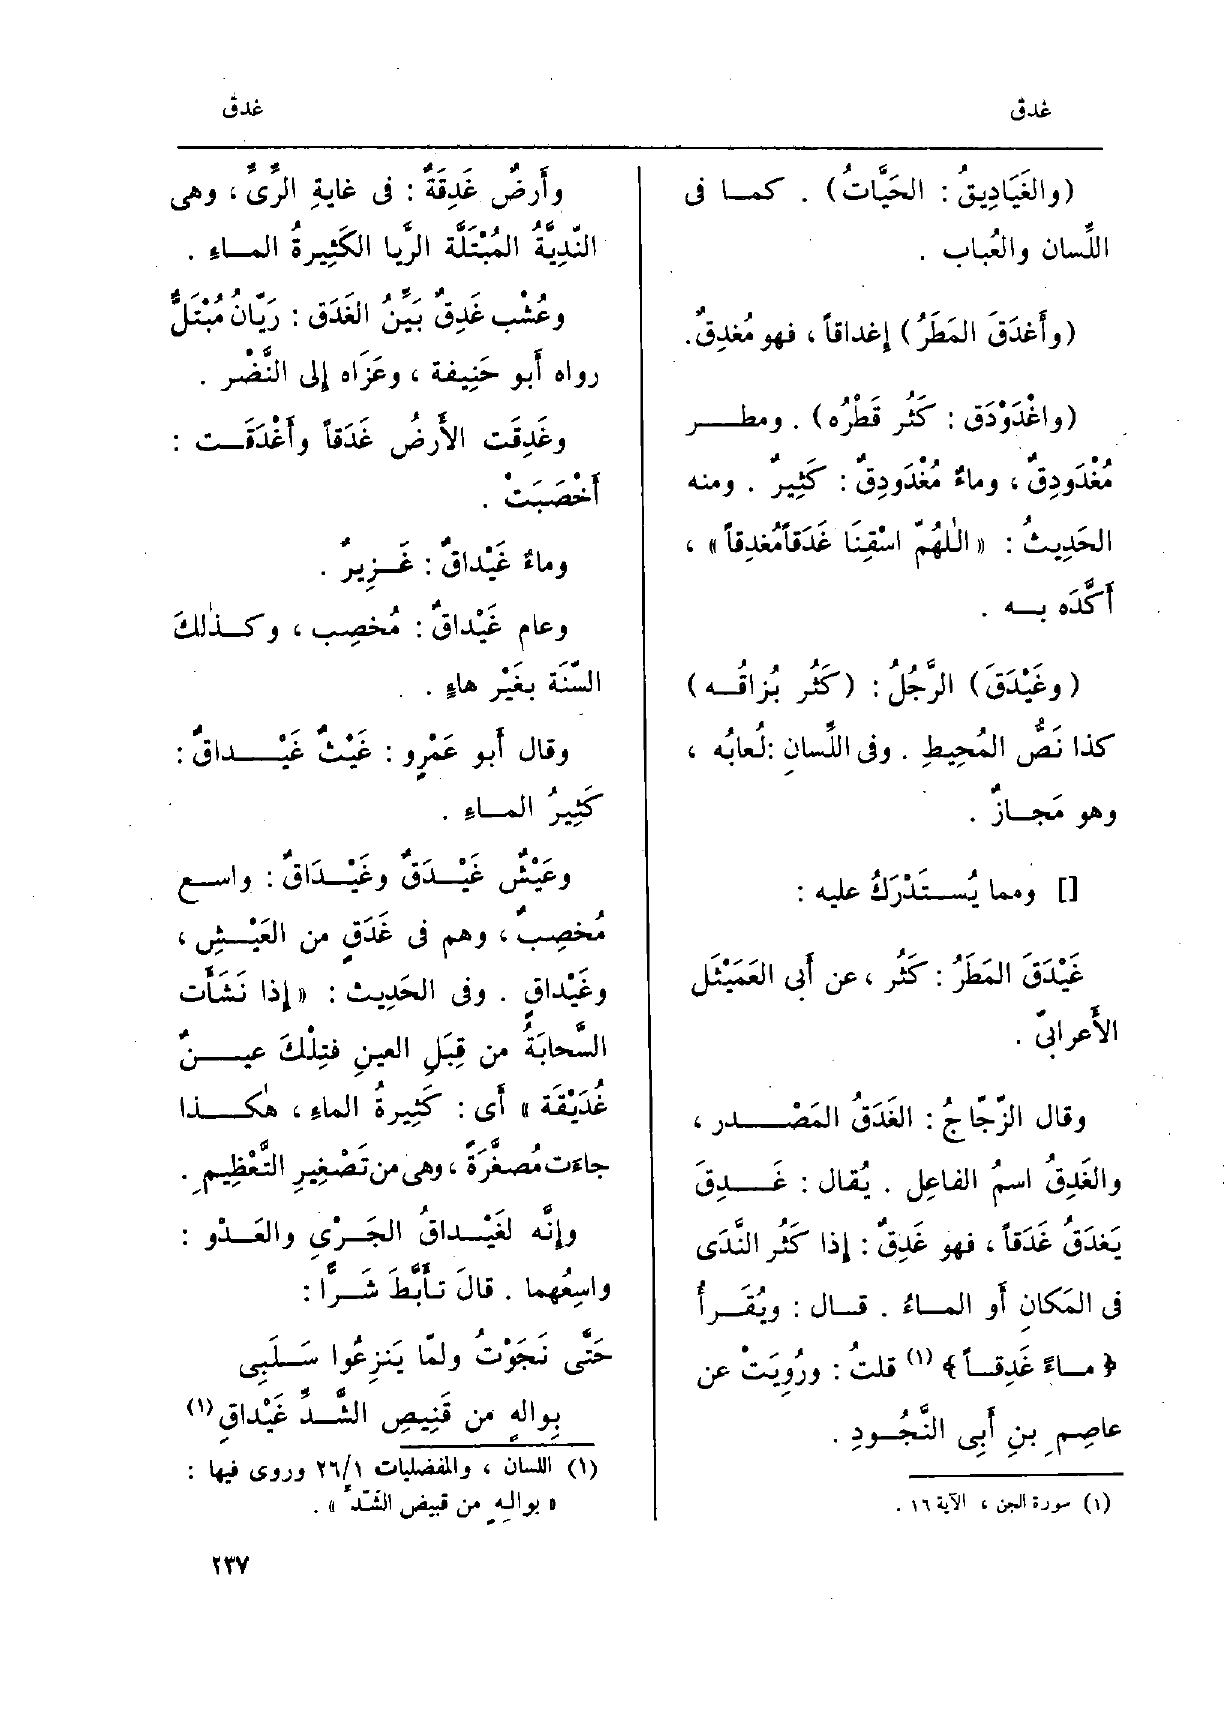 غدق
غدق
(والغَيَادِيقُ : الحَيَّاتُ) . كمـا فى
اللِّسان والعُباب .
(وأَغدَقَ المَطَرُ) إغداقاً ، فهو مُغدِقٌ.
(واغْدَوْدَق : كَثُر قَطْرُه) . ومطـــر
مُغْدَودِقٌ ، وماءٌ مُغْدَودِقٌ : كَثِيرٌ . ومنه
الحَدِيثُ : « اللّٰهُمّ اسْقِنَا غَدَقاً مُغدِقاً » ،
أَكَّدَه بــه .
(وغَيْدَقَ) الرَّجُلُ : (كَثُر بُزاقُــه)
كذا نَصُّ المُحِيطِ . وفى اللِّسانِ : لُعابُه ،
وهو مَجــازٌ .
[] ومما يُســتَدْرَكُ عليه :
غَيْدَقَ المَطَرُ : كَثُر ، عن أَبى العَمَيْثَل
الأَعرابىّ .
وقال الزّجّاجُ : الغَدَقُ المَصْــــدر ،
والغَدِقُ اسمُ الفاعِل . يُقال : غَــــدِقَ
يَغدَقُ غَدَقاً ، فهو غَدِقٌ : إذا كَثُر النَّدَى
فى المَكانِ أَو المــاءُ . قــال : ويُقــرأُ
﴿ مــاءً غَدِقــاً ﴾ (١) قلتُ : ورُوِيَتْ عن
عاصِمِ بنِ أَبِى النَّجُــودِ .
(١) سورة الجن ، الآية ١٦ .
وأَرضٌ غَدِقَةٌ : فى غايةِ الرِّىِّ ، وهى
النَّدِيَّةُ المُبْتَلَّة الرَّيا الكَثِيرةُ المـاءِ .
وعُشْب غَدِقٌ بَيِّنُ الغَدَق : رَيّانُ مُبْتَلٌّ
رواه أَبو حَنِيفة ، وعَزَاه إلى النَّضْر .
وغَدِقَت الأَرضُ غَدَقاً وأَغْدَقَــت :
أَخْصَبَتْ .
وماءٌ غَيْداقٌ : غَــزِيرٌ .
وعام غَيْداقٌ : مُخصِب ، وكــذٰلكَ
السّنَة بغَيْر هاءٍ .
وقال أَبو عَمْرٍو : غَيْثٌ غَيْــــداقٌ :
كَثِيرُ المــاءِ .
وعَيْشٌ غَيْــدَقٌ وغَيْــدَاقٌ : واســع
مُخصِبٌ ، وهم فى غَدَقٍ من العَيْــشِ ،
وغَيْداقٍ . وفى الحَدِيث : « إِذا نَشَأَت
السَّحابَةُ من قِبَلِ العينِ فتِلْكَ عيــــنٌ
غُدَيْقَة » أَى : كَثِيرةُ الماءِ ، هٰكــــذا
جاءَت مُصغَّرَةً ، وهى من تَصْغِيرِ التَّعْظِيمِ .
وإِنَّه لغَيْــداقُ الجَــرْىِ والعَــدْو :
واسِعُهما . قالَ تــأَبَّطَ شَــرًّا :
حَتَّى نَجَوْتُ ولمّا يَنزِعُوا سَــلَبِى
بِوالهٍ من قَنِيصِ الشَّــدِّ غَيْداقِ (١)
(١) اللسان ، والمفضليات ٢٦/١ وروى فيها :
« بوالهٍ من قبيض الشَّدِّ » .
٢٣٧